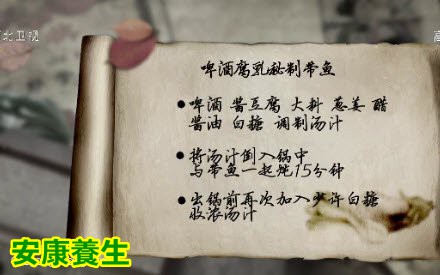 北卫视
高
啤酒腐乳秘制带鱼
●啤酒 酱豆腐 大料 葱姜 醋
酱油 白糖 调制汤汁
●将汤汁倒入锅中
与带鱼一起炖15分钟
●出锅前再次加入少许白糖
收浓汤汁
安康養生